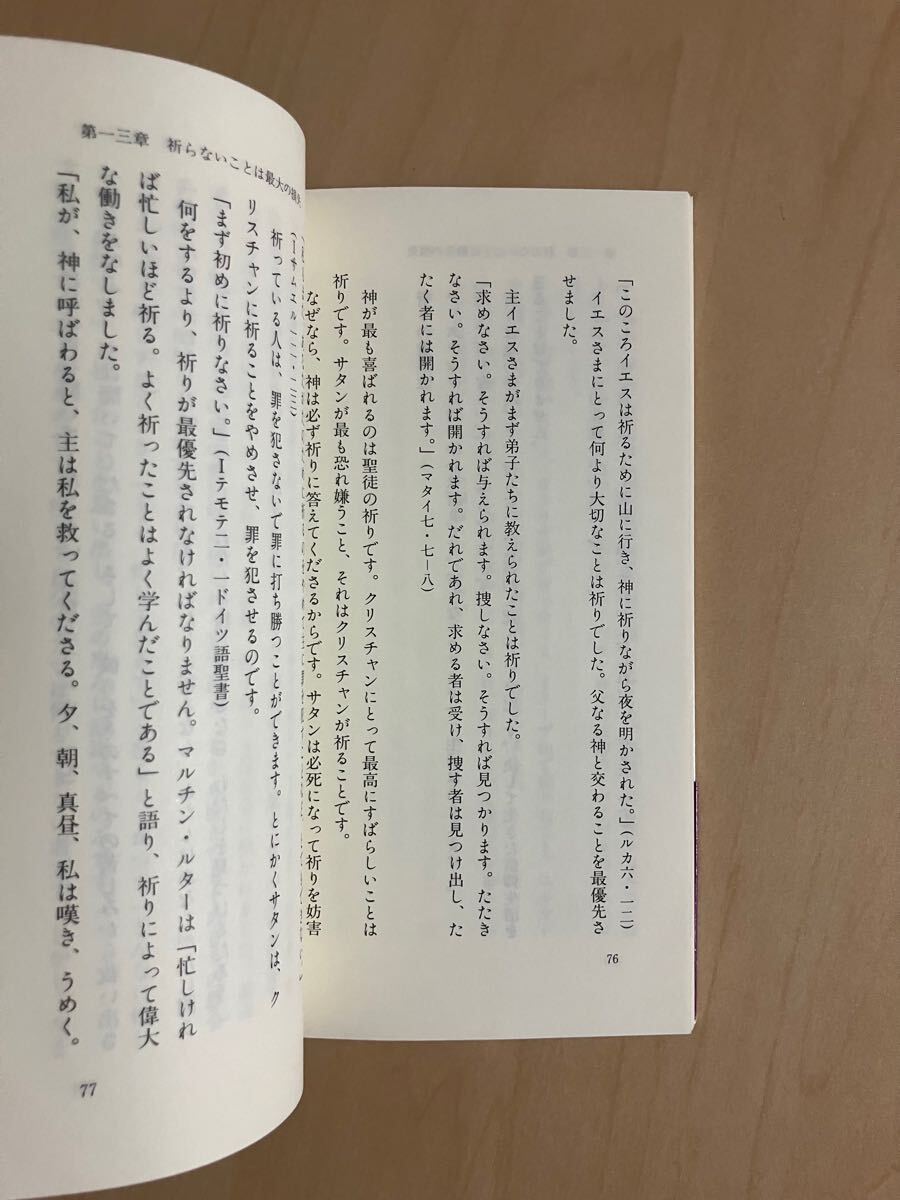 「このころイエスは祈るために山に行き、神に祈りながら夜を明かされた。」(ルカ六・一二)
イエスさまにとって何より大切なことは祈りでした。父なる神と交わることを最優先さ
せました。
主イエスさまがまず弟子たちに教えられたことは祈りでした。
「求めなさい。そうすれば与えられます。捜しなさい。そうすれば見つかります。たたき
なさい。そうすれば開かれます。だれであれ、求める者は受け、捜す者は見つけ出し、た
たく者には開かれます。」(マタイ七・七ー八)
神が最も喜ばれるのは聖徒の祈りです。クリスチャンにとって最高にすばらしいことは
祈りです。サタンが最も恐れ嫌うこと、それはクリスチャンが祈ることです。
なぜなら、神は必ず祈りに答えてくださるからです。サタンは必死になって祈りを妨害
76
第一三章 祈らないことは最大の損失
(Ⅰサムエル一二・二三)
祈っている人は、罪を犯さないで罪に打ち勝つことができます。とにかくサタンは、ク
リスチャンに祈ることをやめさせ、罪を犯させるのです。
「まず初めに祈りなさい。」(Ⅰテモテ二・一ドイツ語聖書)
何をするより、祈りが最優先されなければなりません。マルチン・ルターは「忙しけれ
ば忙しいほど祈る。よく祈ったことはよく学んだことである」と語り、祈りによって偉大
な働きをなしました。
「私が、神に呼ばわると、主は私を救ってくださる。夕、朝、真昼、私は嘆き、うめく。
77